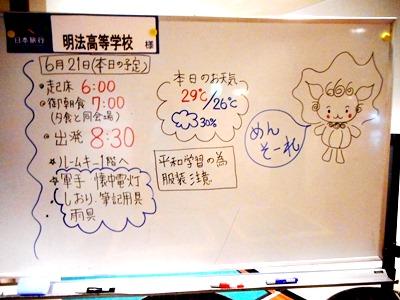 日本旅行
明法高等学校 様
6月21日(本日の予定)
起床 6:00
御朝食 7:00
(夕食と同会場)
出発 8:30
ルームキー1階へ
軍手 懐中電灯
しおり、筆記用具
雨具
本日のお天気
29℃/26℃
30%
平和学習の為
服装注意
めん
そーれ